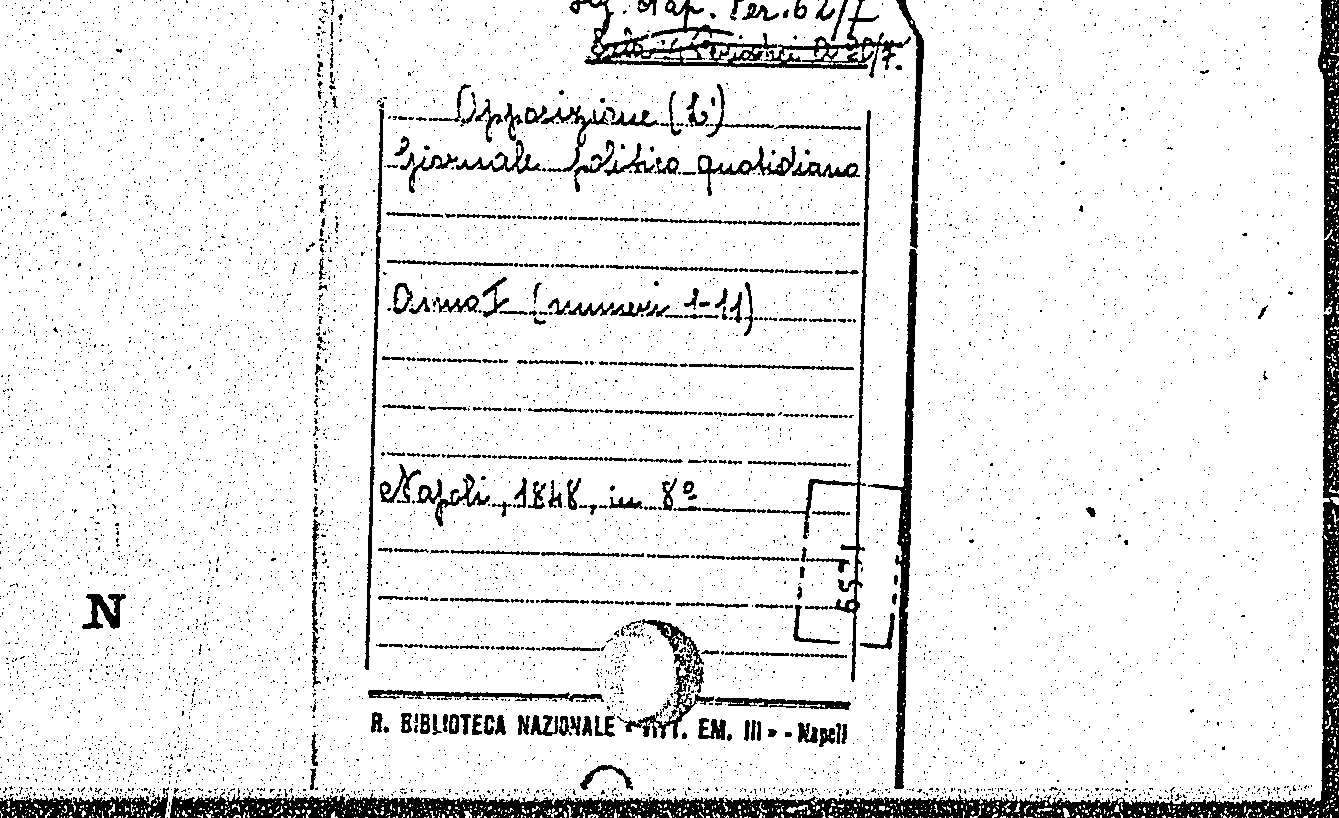 Nap. Per. 62/7
Opposizione (L')
Giornale politico quotidiano
Anno I (numeri 1-11)
Napoli, 1848, in 8º
N
R. BIBLIOTECA NAZIONALE VITT. EM. III - Napoli